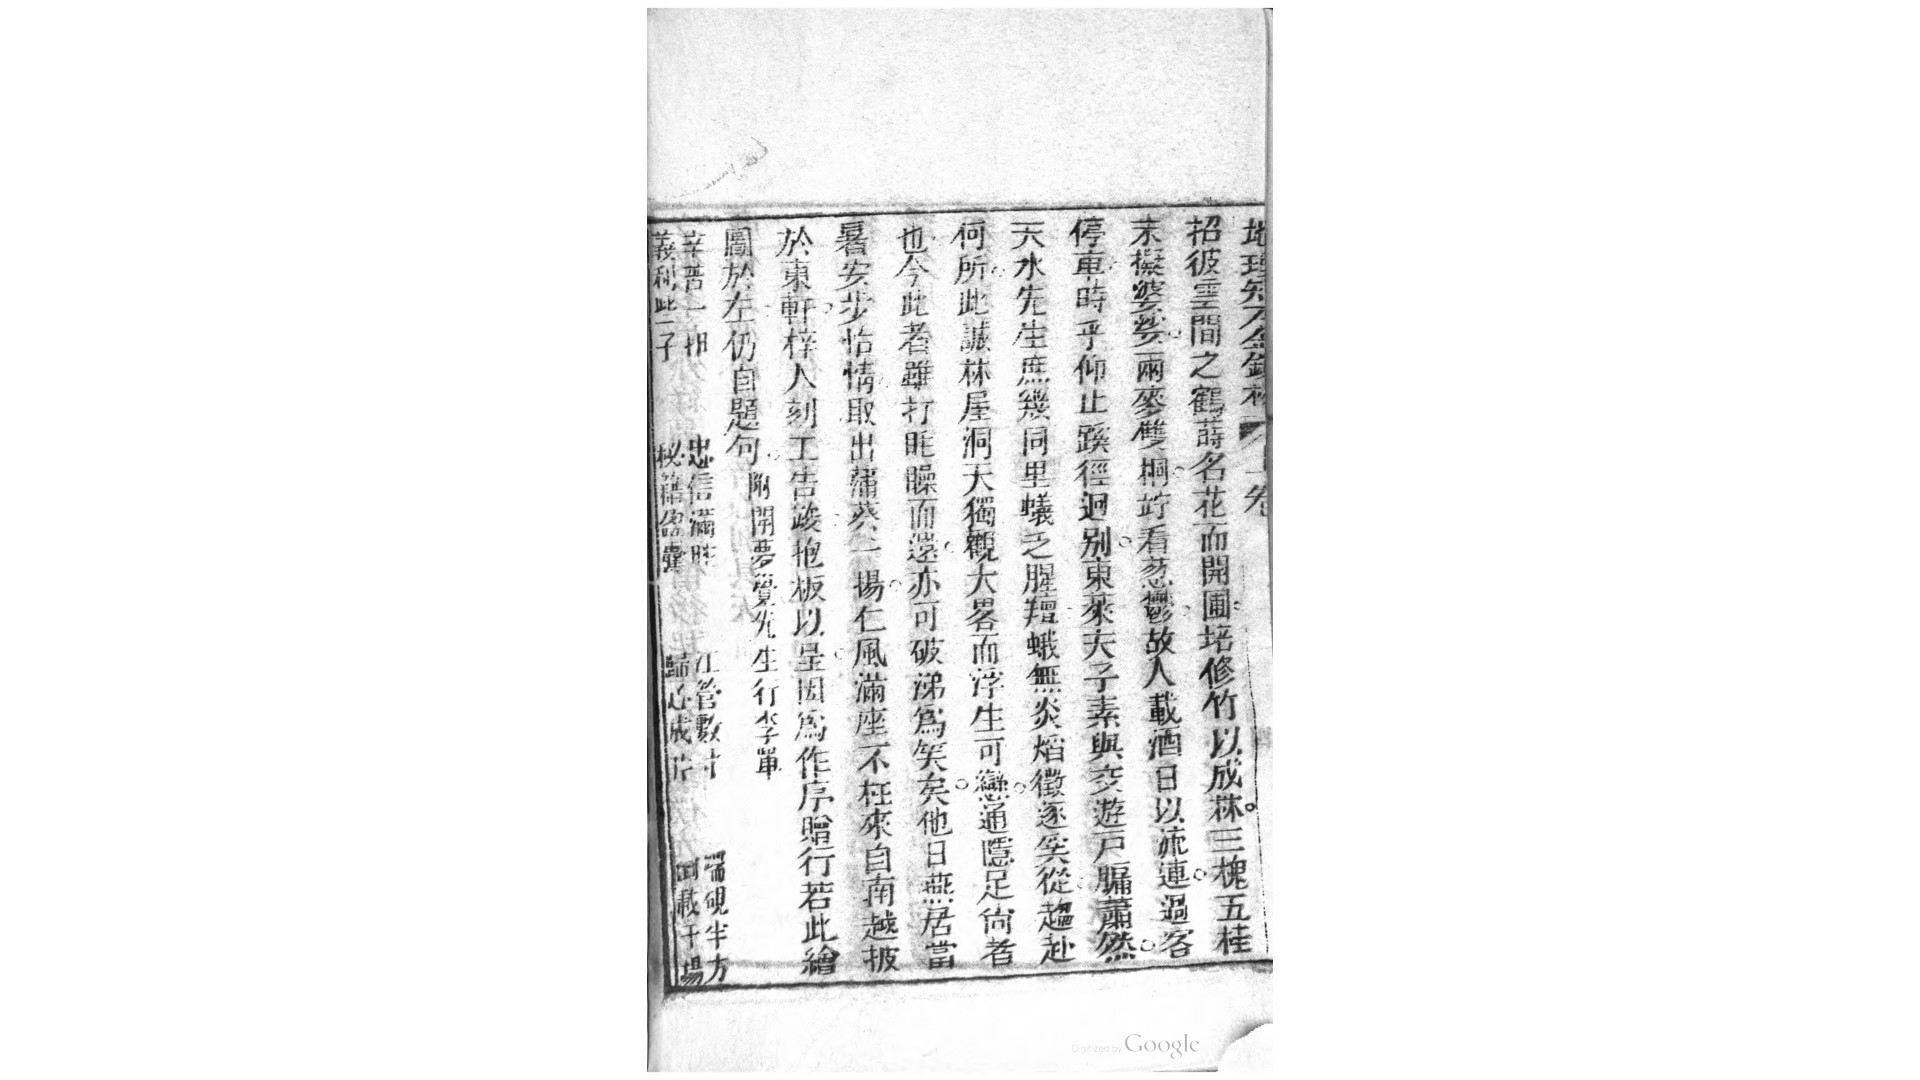 招彼雲間之鶴蒔名花而開圃培修竹以成林三槐五桂
末擬婆娑兩麥雙桐竚看葱鬱故人載酒日以流連過客
停車時乎仰止蹊徑迥别東萊夫子素與交遊戸牖蕭然
天水先生庶幾同里蟻乏腥羶蛾無炎焰徵逐奚從趨赴
何所此誠林屋洞天獨觀大畧而浮生可戀通隱足尙者
也今此者雖打眊矂而還亦可破涕爲笑矣他日燕居當
暑安步怡情取出蒲葵一揚仁風滿座不枉來自南越披
於東軒梓人刻工告竣抱板以呈因爲作序贈行若此繪
圖於左仍自題句附開夢覺先生行李單
忠信滿 江管數寸 端硯半方
義利此二子 秘籍盈囊 成 載千場
Digitized by Google